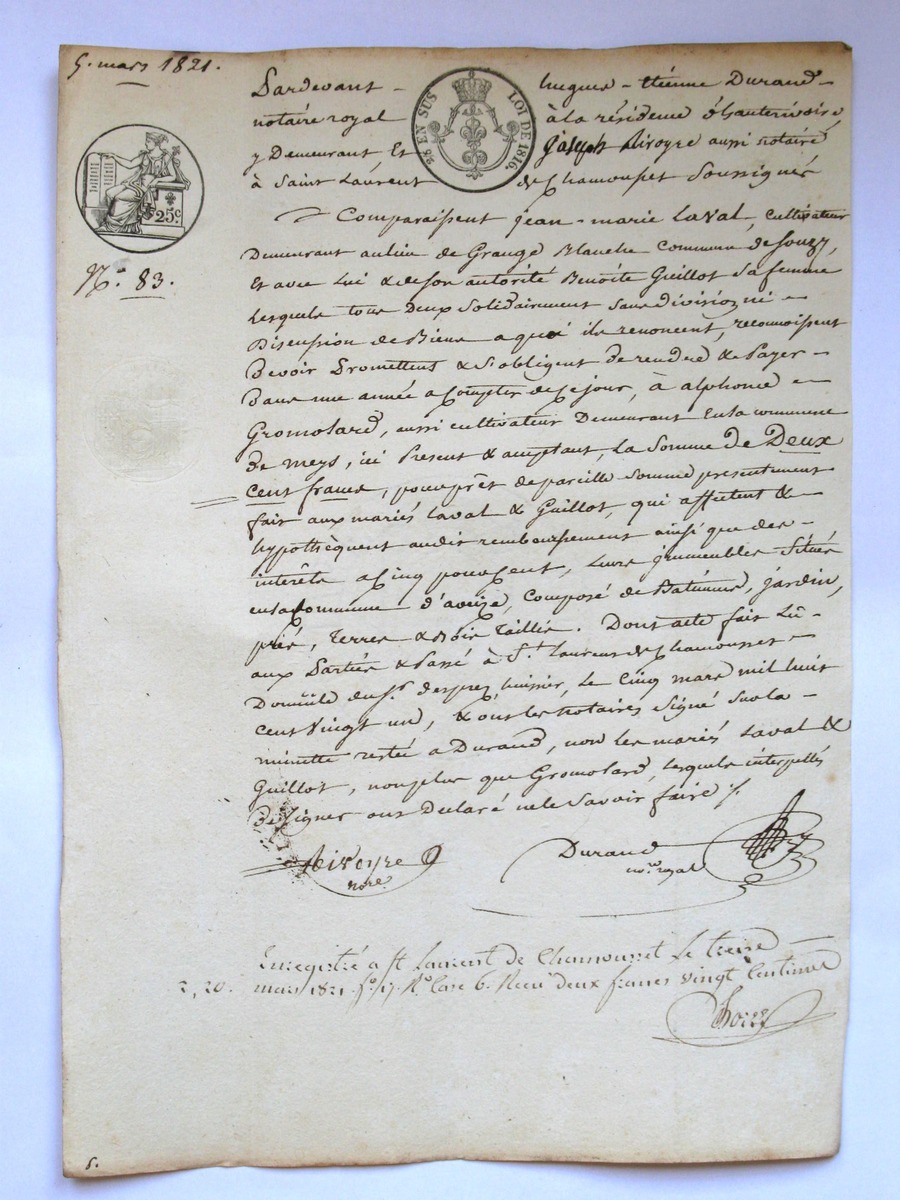 5. mars 1821.
Pardevant - hugues - étienne Durand -
notaire royal à la résidence d'hauterivoire,
y Demeurant, Et joseph Rivoyre aussi notaire
à Saint Laurent de Chamousset Soussignés
2/10 EN SUS LOI DE 1816.
25c
N.o 83.
Comparaissent jean-marie Laval, cultivateur
Demeurant au lieu de Grange Blanche Commune de Souzy,
Et avec Lui & de son autorité Benoite Guillot Sa femme
Lesquels tous Deux Solidairement sans division ni -
Discussion de Biens a quoi ils renoncent, reconnoissent
Devoir Promettent & S'obligent de rendre & Payer -
Dans une année a Compter de Ce jour, à alphonse -
Gromolard, aussi cultivateur Demeurant En la commune
de meys, ici Present & acceptant, La Somme de Deux
Cent francs, pour prêt de pareille Somme presentement
fait aux mariés Laval & Guillot, qui affectent &
hypothèquent audit remboursement ainsi que des -
interêts a Cinq pour Cent, Leurs jmmeubles Situés
en la Commune d'aveize, Composé de Batimens, jardin,
prés, Terres & Bois Taillis. Dont acte fait Lû -
aux Parties & Passé à S.t Laurent de Chamousset -
Domicile du S.r desprez, huissier, Le Cinq mars mil huit
Cent Vingt un, & ont Les Notaires Signé Sur La -
minutte restée a Durand, non les mariés Laval &
Guillot, non plus que Gromolard, Lesquels interpellés
de Signer ont Declaré ne le Savoir faire /.
Rivoyre
nore.
Durand
no.re royal
Enregistré a St Laurent de Chamousset Le treize
2, 20. mars 1821 fo. 17 Ro. Case 6. Recu deux francs Vingt Centimes
5.